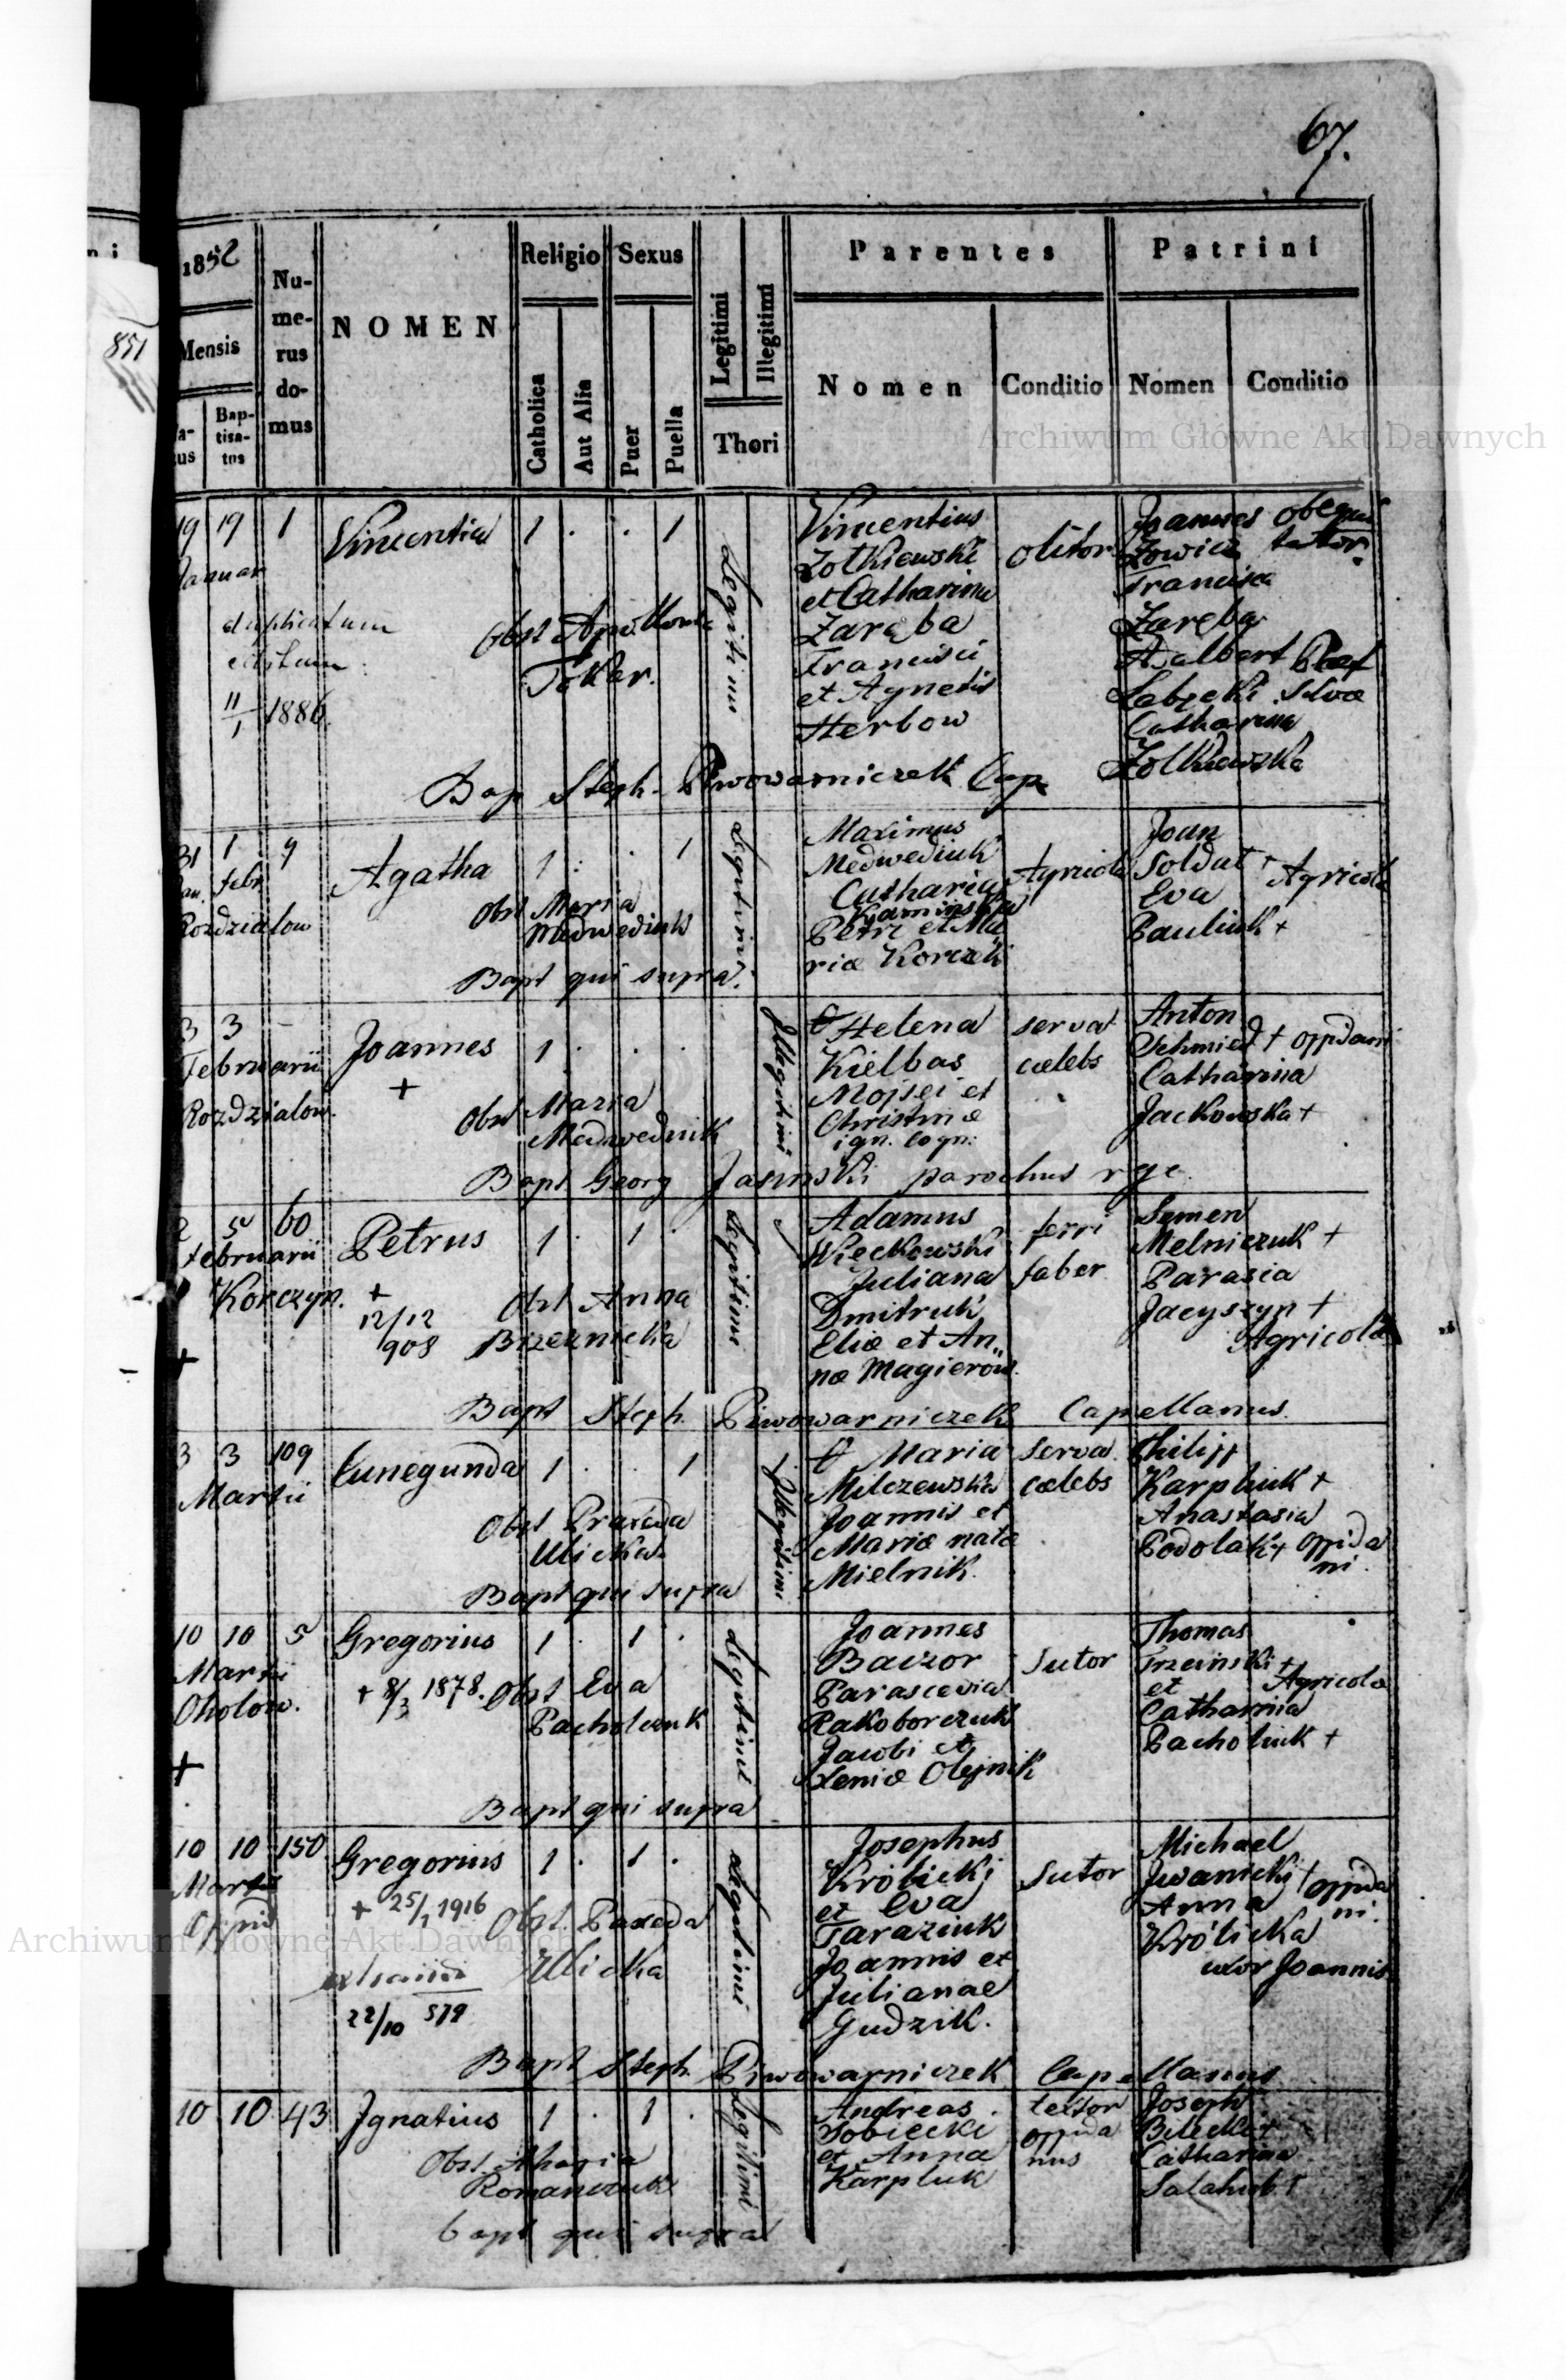 67.
1852
Mensis
Bap-
tisa-
tus
Nu-
me-
rus
do-
mus
NOMEN
Religio
Catholica
Aut Alia
Sexus
Puer
Puella
Legitimi
Illegitimi
Thori
Parentes
Nomen
Conditio
Patrini
Nomen
Conditio
851
Archiwum Główne Akt Dawnych
19 19 1 Vincentia 1 . . 1
Januar
duplicatum
11/1 1886.
Obst Apollonia
Tokar.
Legitimi
Vincentius
Zolkiewski
et Catharina
Zaręba
Francisci
et Agnetis
Herbow
olitor
Joannes
Zowicz
Francisca
Zaręba
Adalbert
Catharina
Zolkiewska
Bap Steph. Piwowarniczek Cap
31 1 9 Agatha 1 . . 1
Jan. febr
Rozdzialow
Obst Maria
Medwediuk
Legitimi
Maximus
Medwediuk
Catharina
Kaminska
Petri et Ma
riæ Korczak
Agricola
Joan
Soldat +
Eva
Pauliuk +
Agricolæ
Bapt qui supra.
3 3 -
Februarii
Rozdzialow.
Joannes 1 . . .
+
Obst Maria
Medwediuk
Illegitimi
Helena
Kielbas
Mojsei et
Christinæ
ign. cogn:
serva
cælebs
Anton
Schmied + oppidani
Catharina
Jackowska +
Bapt Georg Jasinski parochus rgc.
2 5 60
Februarii
Korczyn.
+
Petrus 1 . 1 .
+
12/12
908
Obst Anna
Brzeznicka
Legitimi
Adamus
Więckowski
Juliana
Dmitruk
Eliæ et An„
næ Magierow.
ferri
faber
Semen
Melniczuk +
Parasia
Jacyszyn +
Agricolæ
Bapt Steph. Piwowarniczek Capellanus.
3 3 109
Martii
Cunegunda 1 . . 1
Obst Praxeda
Ulicka.
Illegitimi
Maria
Milczewska
Joannis et
Mariæ natæ
Mielnik.
serva
cælebs
Philipp
Karpluk +
Anastasia
Podolak + oppida
ni.
Bapt qui supra
10 10 5
Martii
Oholow.
+
Gregorius 1 . 1 .
+ 8/3 1878.
Obst Eva
Pacholczuk
Legitimi
Joannes
Baczor
Parascevia
Rakoborczuk
Jacobi et
Xeniæ Olejnik
Sutor
Thomas
Trzcinski +
et
Catharina
Pacholiuk +
Agricolæ
Bapt qui supra
10 10 150
Martii
Oppid
Gregorius 1 . 1 .
+ 25/1 1916
22/10 579
Obst. Paxeda
Ulicka
Legitimi
Josephus
Królicki
et Eva
Taraziuk
Joannis et
Julianae
Gudzik.
Sutor
Michael
Iwanicki +
Anna
Królicka
uxor Joannis
oppida
ni.
Archiwum Główne Akt Dawnych
Bapt Steph. Piwowarniczek Capellanus
10 10 43 Ignatius 1 . 1 .
Obst Maria
Romanczuk
Legitimi
Andreas
Sobiecki
et Anna
Karpluk
textor
oppida
nus
Joseph
Bilecki +
Catharina
Salahub +
bapt qui supra